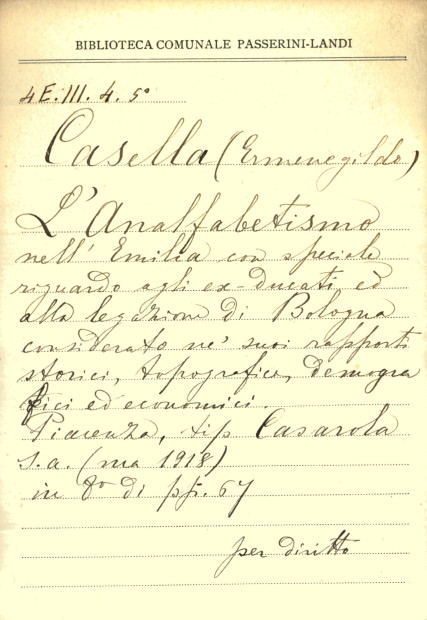 BIBLIOTECA COMUNALE PASSERINI-LANDI
4E.III.4.5°
Casella (Ermenegildo)
L'Analfabetismo
nell'Emilia con speciale
riguardo agli ex-ducati ed
alla legazione di Bologna
considerato ne' suoi rapporti
storici, topografici, demogra
fici ed economici.
Piacenza, tip Casarola
s.a. (ma 1918)
in 8° di pp. 67
per diritto